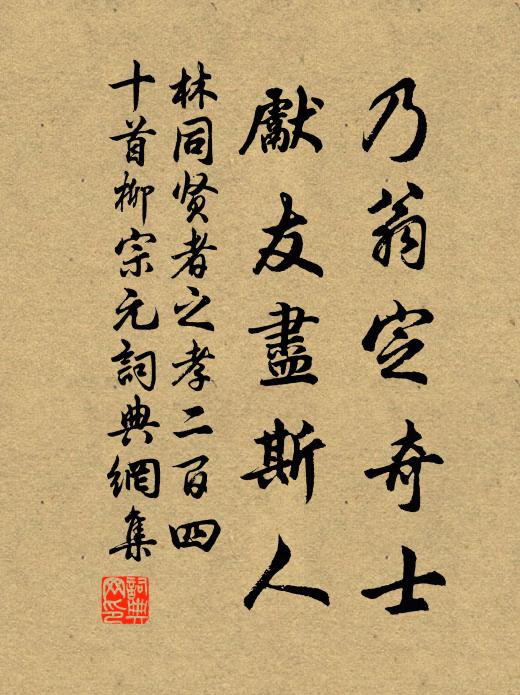 乃翁定奇士
獻友盡斯人
林同贤者之孝二百四
十首柳宗元詞典網集
詞典网印